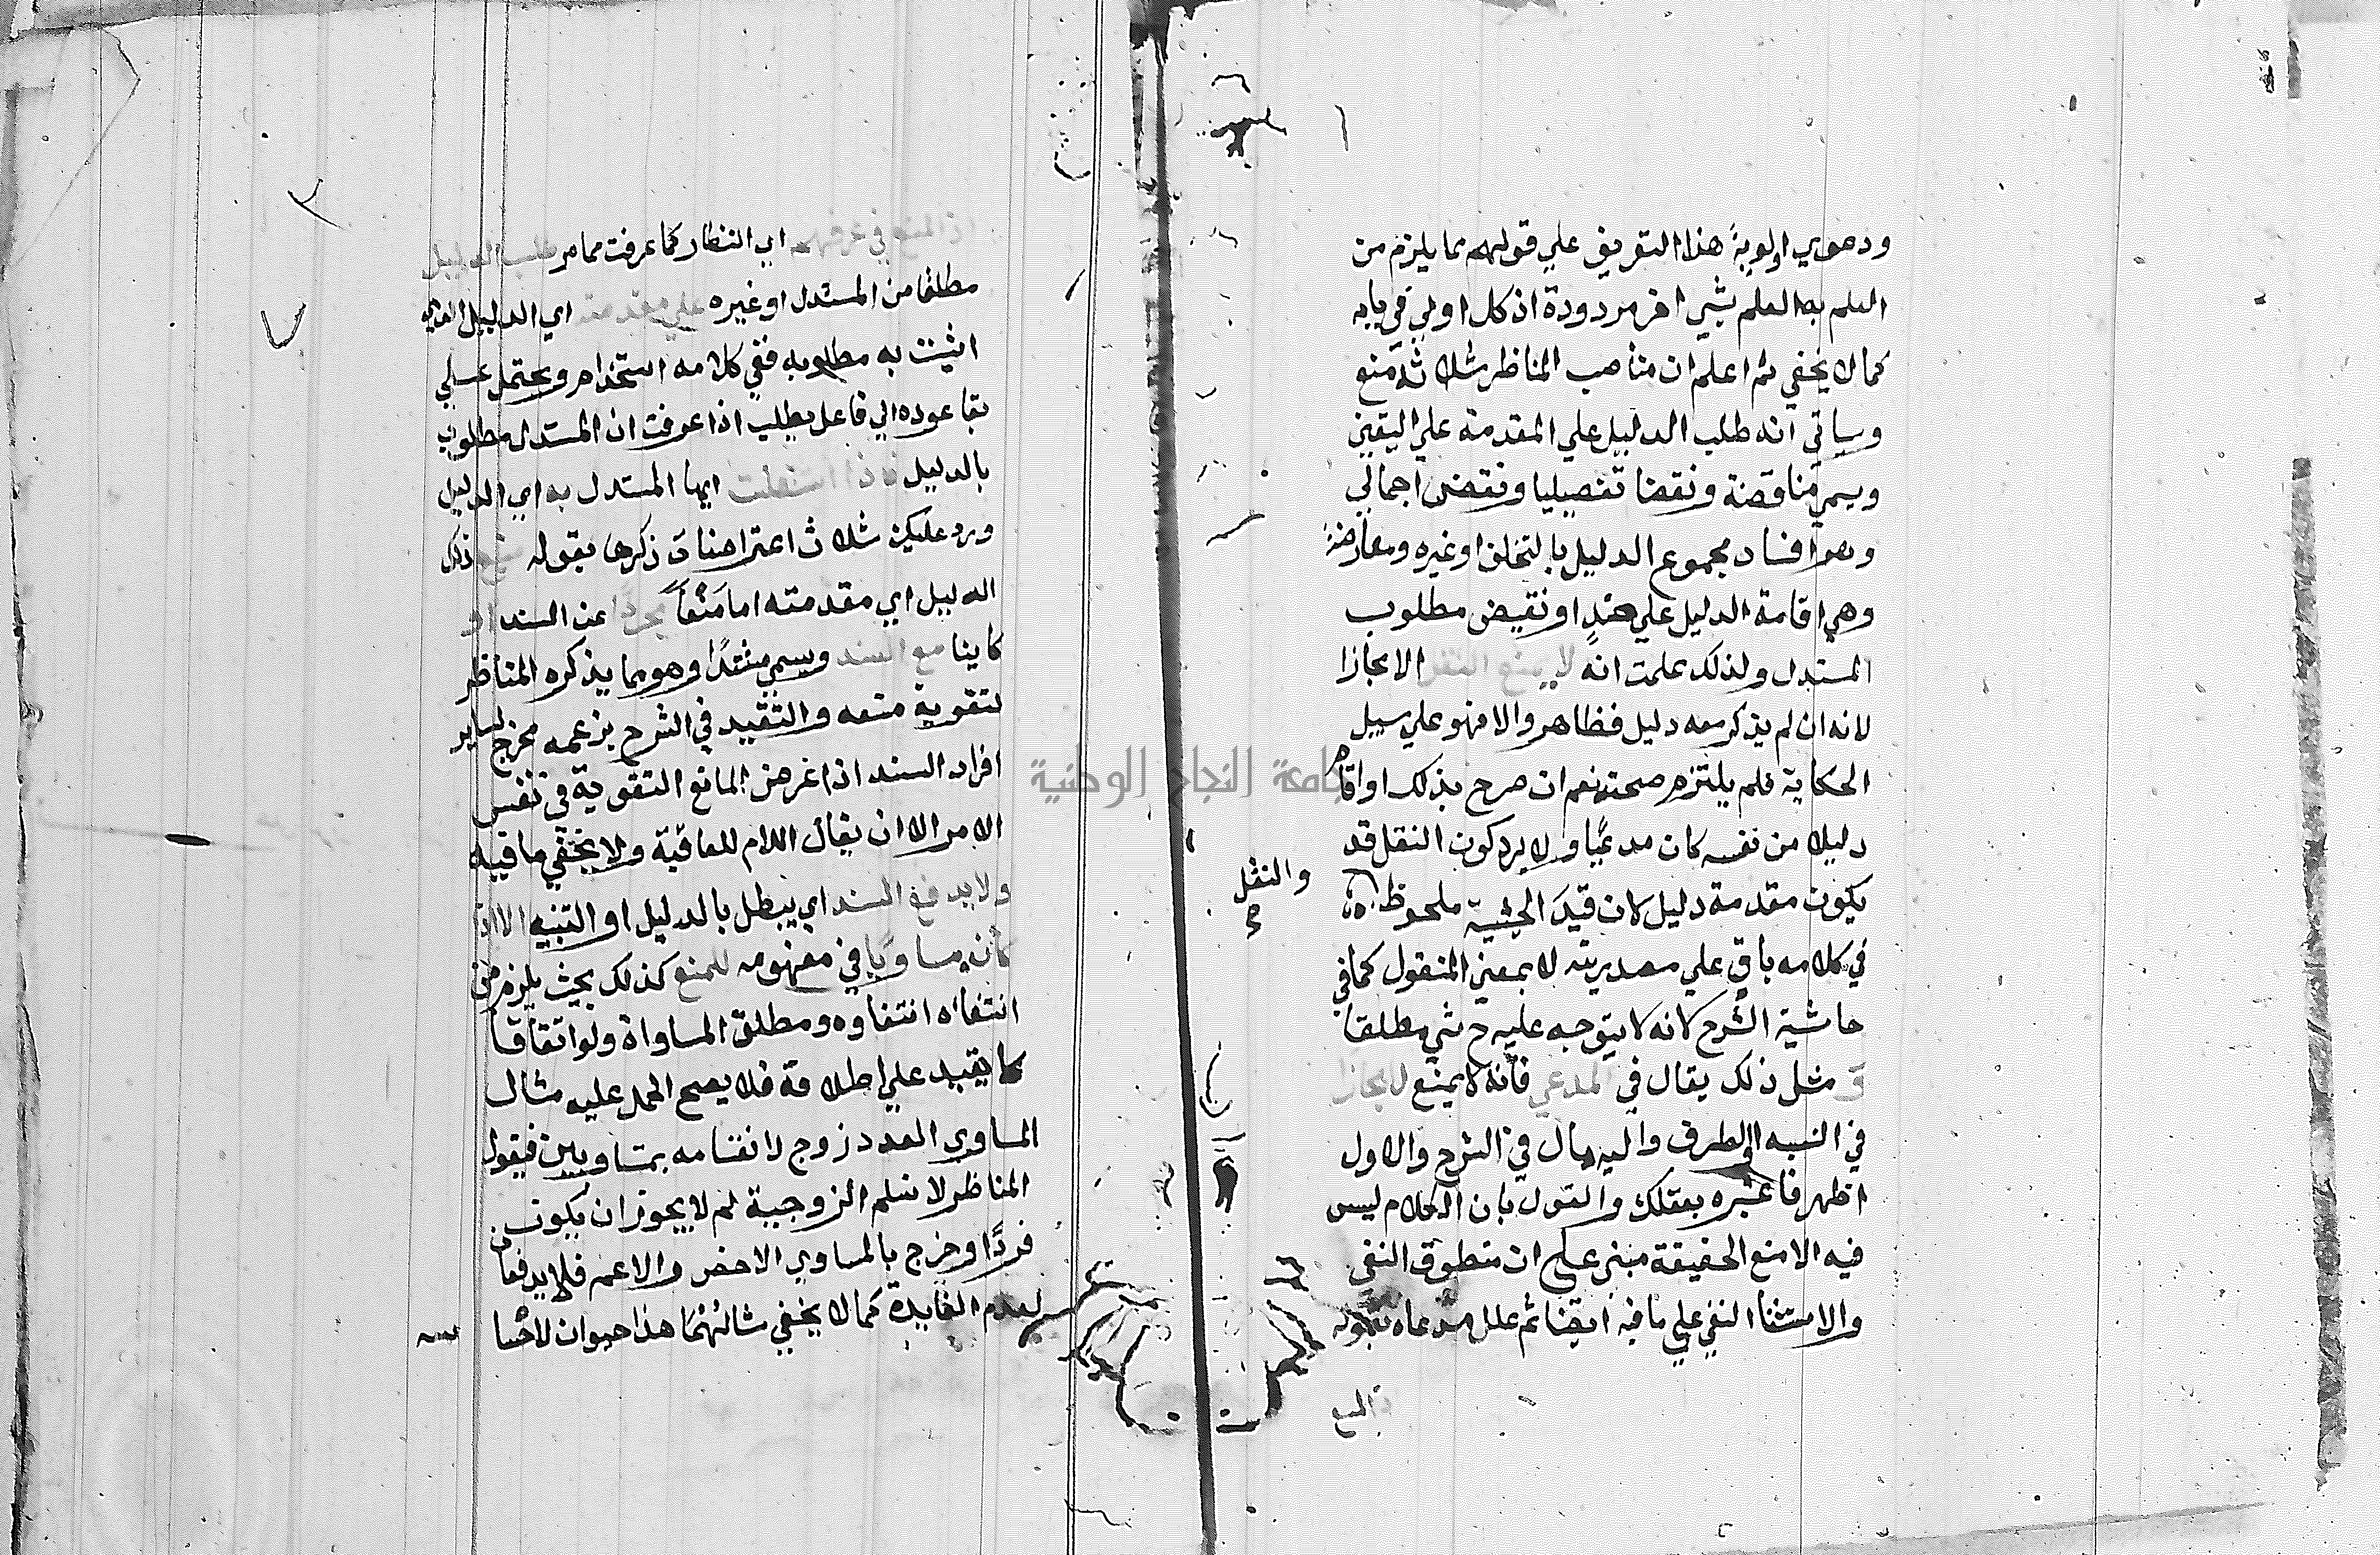 ودعوي اولوية هذا التعريف علي قولهم ما يلزم من
العلم به العلم بشي اخر مردودة اذ كل اولي في بابه
كما لا يخفي ثم اعلم ان مناصب المناظر ثلاثة منع
وسياتي انه طلب الدليل علي المقدمة علي اليقين
ويسمي مناقضة ونقضا تفصيليا ونقض اجمالي
وهو افساد مجموع الدليل بالتخلف او غيره ومعارضة
وهي اقامة الدليل علي ضد او نقيض مطلوب
المستدل ولذلك علمت انه لا يمنع النقل الا مجازا
لانه ان لم يذكر معه دليل فظاهر والا فهو علي سبيل
الحكاية فلم يلتزم صحته نعم ان صرح بذلك او اقام
دليلا من نفسه كان مدعيا ولا يرد كون النقل قد
يكون مقدمة دليل لان قيد الحيثية ملحوظ
والنقل
في كلامه باق علي مصدريته لا بمعني المنقول كما في
حاشية الشرح لانه لا يتوجه عليه ح شي مطلقا
و مثل ذلك يقال في المدعي فانه لا يمنع الا مجازا
في النسبة او الطرف واليه مال في الشرح والاول
اظهر فاعتبره بعقلك والقول بان الكلام ليس
فيه الا منع الحقيقة مبني علي ان منطوق النفي
والاستثنا النفي علي ما فيه ايضا ثم علل مدعاه بقوله
اذ المنع
اذ المنع في عرفهم اي النظار كما عرفت مما مر طلب الدليل
مطلقا من المستدل او غيره علي مقدمته اي الدليل الذي
اثبت به مطلوبه ففي كلامه استخدام ويحتمل علي
بقا عوده الي فاعل يطلب اذا عرفت ان المستدل مطلوب
بالدليل فاذا اشتغلت ايها المستدل به اي الدليل
ورد عليك ثلاث اعتراضات ذكرها بقوله منع ذلك
الدليل اي مقدمته اما منعا مجردا عن السند او
كاينا مع السند ويسمي مستندا وهو ما يذكره المناظر
لتقوية منعه والتقييد في الشرح بزعمه مخرج لساير
افراد السند اذ غرض المانع التقوية في نفس
الامر الا ان يقال اللام للعاقبة ولا يخفي ما فيه
ولا يدفع السند اي يبطل بالدليل او التنبيه الا اذا
كان مساويا في مفهومه للمنع كذلك بحيث يلزم من
انتفائه انتفاوه ومطلق المساواة ولو اتفاقا
كما يفيد علي اطلاقه فلا يصح الحمل عليه مثال
المساوي العدد زوج لانقسامه بمتساويين فيقول
المناظر لا نسلم الزوجية لم لا يجوز ان يكون
فردا وخرج بالمساوي الاخص والاعم فلا يدفعان
لعدم الفايدة كما لا يخفي مثالهما هذا حيوان لاحسا
جامعة النجاح الوطنية